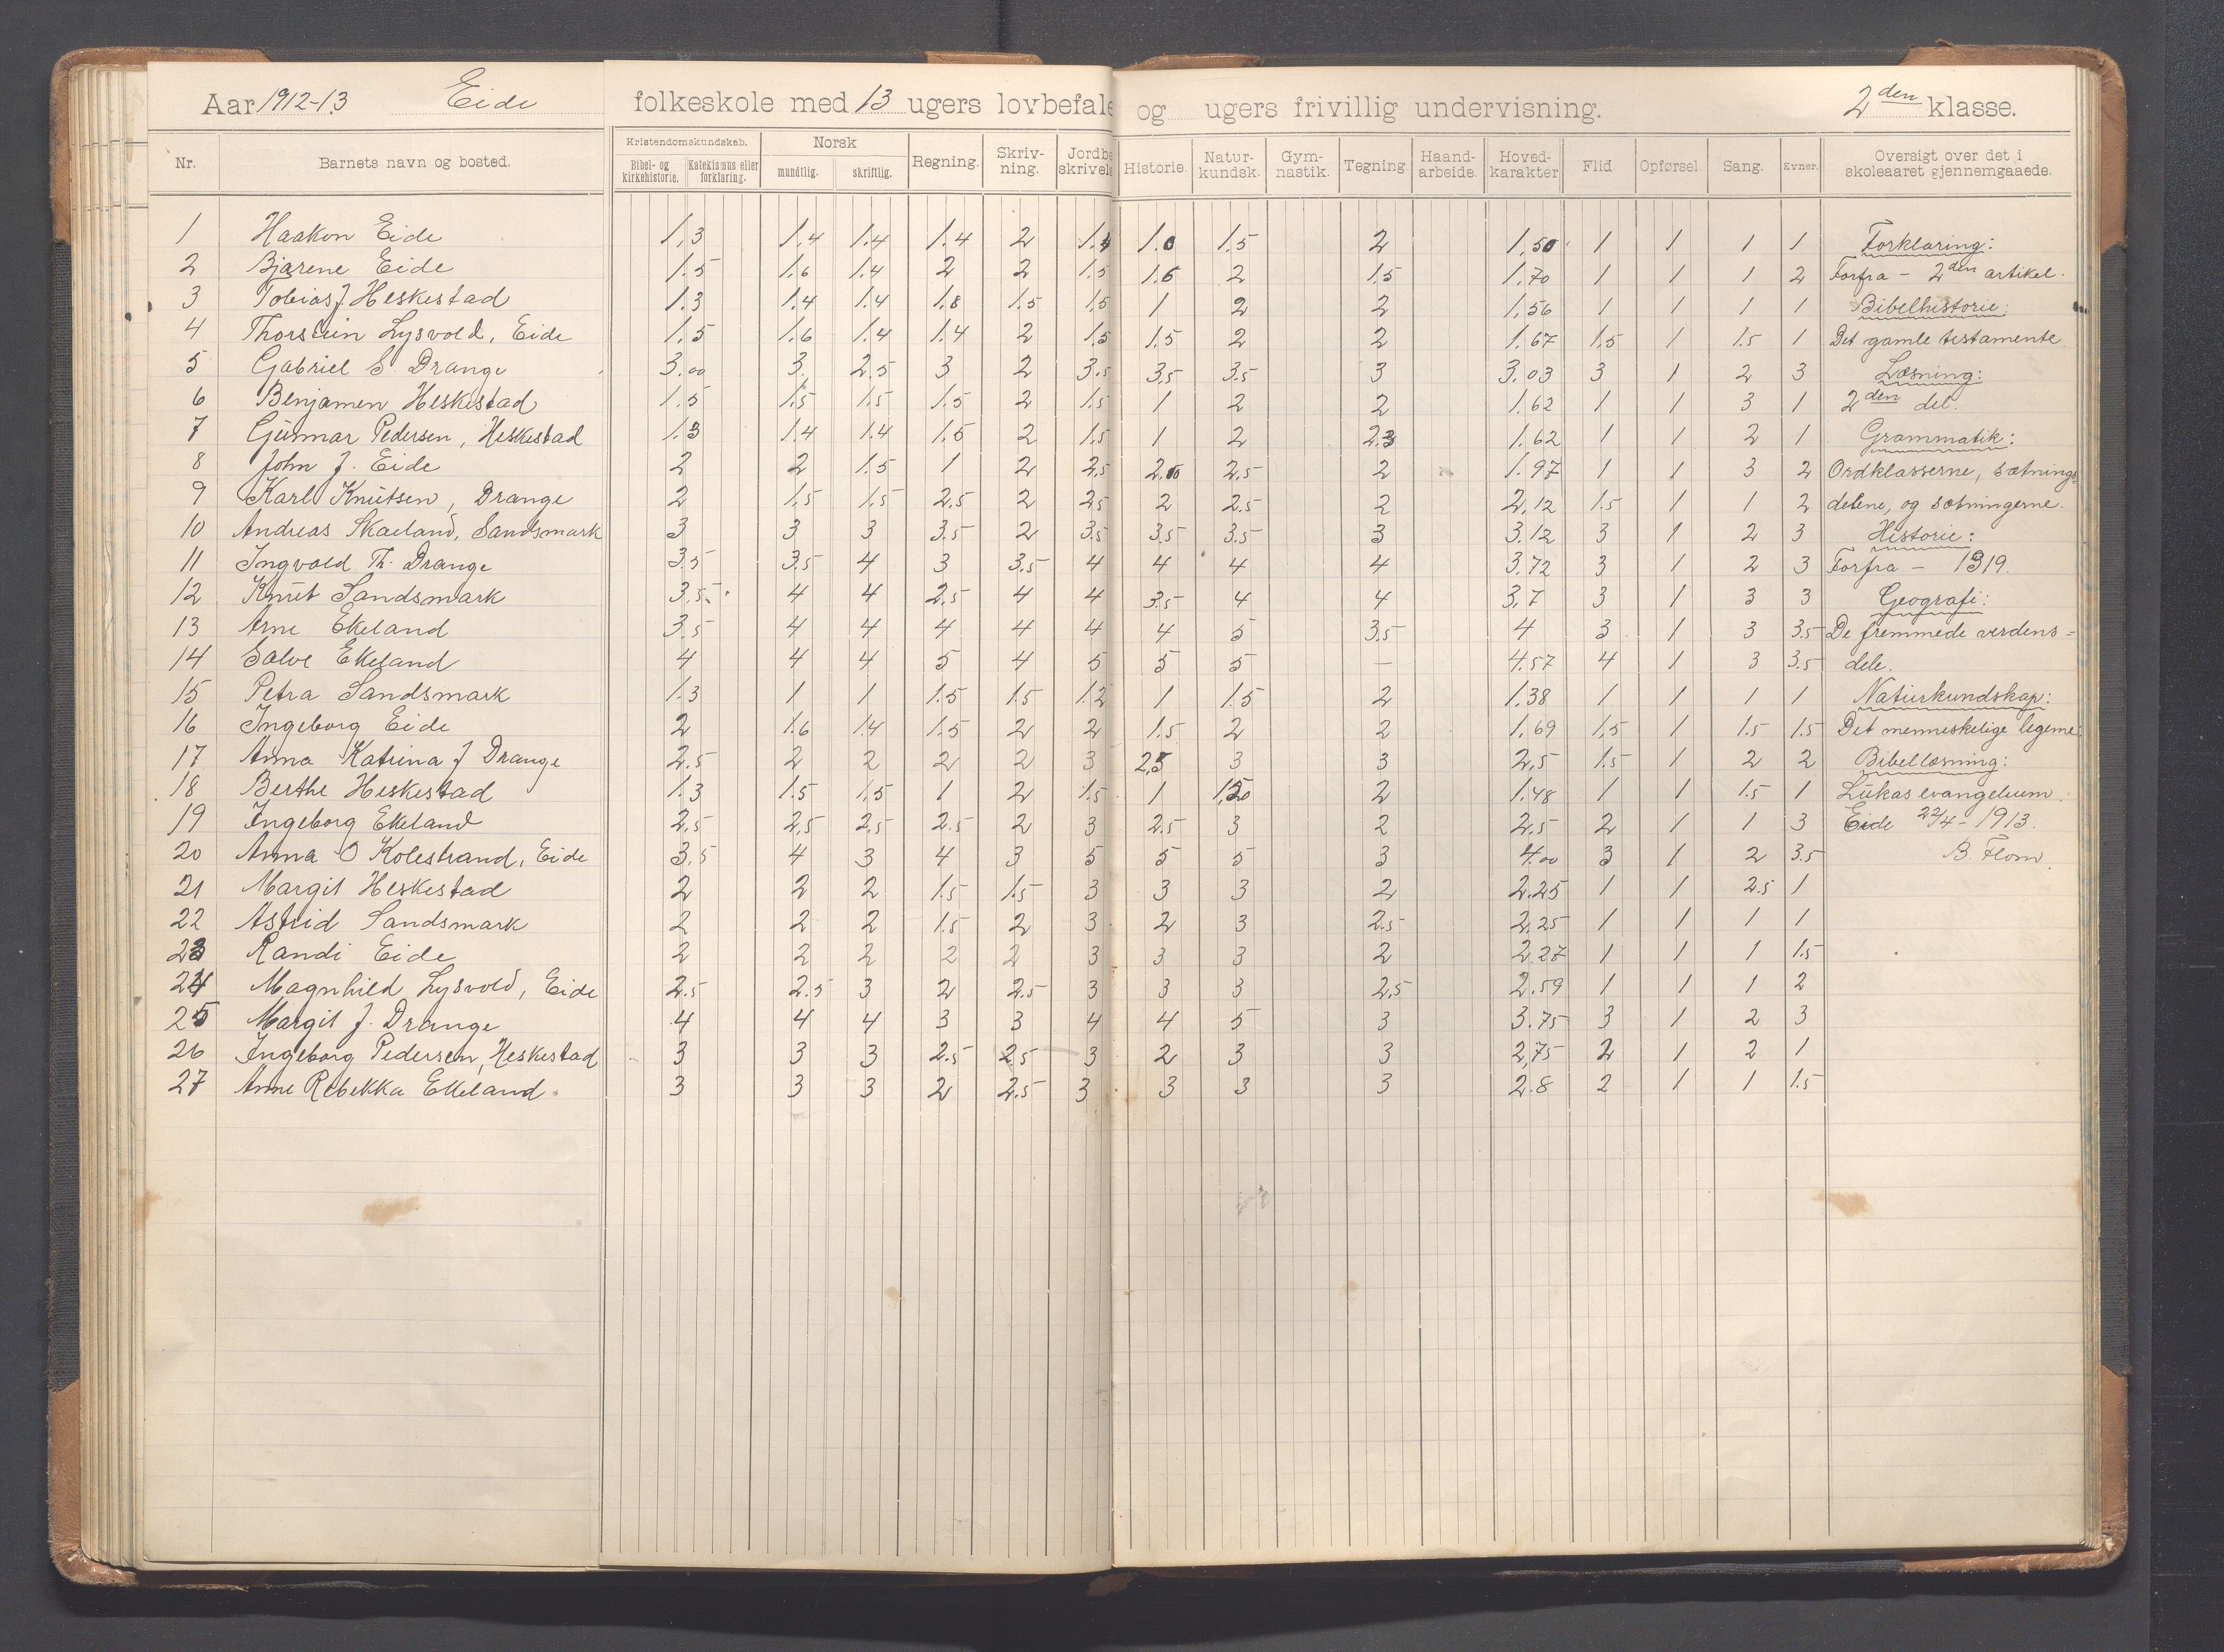 Aar 1912-13 Eide folkeskole med 13 ugers lovbefale og ugers frivillig undervisning. 2den klasse.
Nr. Barnets navn og bosted. Kristendomskundskab. Bibel- og kirkehistorie. Katekismus eller forklaring. Norsk mundtlig. skriftlig. Regning. Skriv-ning. Jordbe skrivels Historie. Natur-kundsk. Gym-nastik. Tegning Haand-arbeide. Hoved-karakter Flid. Opførsel. Sang. Evner. Oversigt over det i skoleaaret gjennemgaaede.
1 Haakon Eide 1.3 1.4 1.4 1.4 2 1.0 1.5 2 1,50 1 1 1 1 Forklaring:
2 Bjarene Eide 1.5 1.6 1.4 2 2 1.5 1.6 2 1.5 1.70 1 1 1 2 Forfra - 2den artikel.
3 Tobias J Heskestad 1.3 1.4 1.4 1.8 1.5 1.5 1 2 2 1,56 1 1 1 1 Bibelhistorie:
4 Thorstein Lysvold, Eide 1.5 1.6 1.4 1.4 2 1.5 1.5 2 2 1.67 1.5 1 1.5 1 Det gamle testamente.
5 Gabriel S Drange 3.00 3. 2.5 3 2 3.5 3.5 3.5 3 3.03 3 1 2 3 Læsning:
6 Benjamen Heskestad 1.5 1.5 1.5 1.5 2 1.5 1 2 2 1.62 1 1 3 1 2den del.
7 Gunnar Pedersen, Heskestad 1.3 1.4 1.4 1.5 2 1.5 1 2 2.3 1.62 1 1 2 1 Grammatik:
8 John J. Eide 2 2 1.5 1 2 2.5 2.5 2 1.97 1 1 3 2 Ordklasserne, sætnings
9 Karl Knutsen, Drange 2 1.5 1.5 2.5 2 2.5 2 2.5 2 2,12 1.5 1 1 2 delene, og sætningerne.
10 Andreas Skaeland, Sandsmark 3 3 3 3.5 2 3.5 3.5 3.5 3 3.12 3 1 2 3 Historie:
11 Ingvald Th. Drange 3.5 3.5 4 3 3.5 4 4 4 4 3.72 3 1 2 3 Forfra - 1319.
12 Knut Sandsmark 3.5 4 4 2.5 4 4 3.5 4 4 3,7 3 1 3 3 Geografi:
13 Arne Ekeland 3.5 4 4 4 4 4 4 5 3.5 4 3 1 3 3.5 De fremmede verdens=
14 Salve Ekeland 4 4 4 5 4 5 5 5 — 4.57 4 1 3 3.5 dele.
15 Petra Sandsmark 1.3 1 1 1.5 1.5 1.2 1 1.5 2 1.38 1 1 1 1 Naturkundskap:
16 Ingeborg Eide 2 1.6 1.4 1.5 2 2 1.5 2 2 1,69 1.5 1 1.5 1.5 Det menneskelige legeme.
17 Anna Katrina J Drange 2.5 2 2 2 2 3 2,5 3 3 2,5 1.5 1 2 2 Bibellæsning:
18 Berthe Heskestad 1.3 1.5 1,5 1 2 1.5 1 2 1.48 1 1 1.5 1 Lukas evangelium.
19 Ingeborg Ekeland 2,5 2,5 2,5 2.5 2 3 2.5 3 2 2.5 2 1 1 3 Eide 22/4 - 1913.
20 Anna O Kolestrand, Eide 3.5 4 3 4 3 5 5 5 3 4.00 3 1 2 3.5 B. Flom.
21 Margit Heskestad 2 2 2 1.5 1.5 3 3 3 2 2.25 1 1 2.5 1
22 Astrid Sandsmark 2 2 2 1.5 2 3 2 3 2.5 2,25 1 1 1 1
23 Randi Eide 2 2 2 2 2 3 3 3 2 2.27 1 1 1 1.5
24 Magnhild Lysvold, Eide 2.5 2.5 3 2 2.5 3 3 3 2,5 2.59 1 1 1 2
25 Margit J. Drange 4 4 4 3 3 4 4 5 3 3.75 3 1 2 3
26 Ingeborg Pedersen, Heskestad 3 3 3 2.5 2.5 3 2 3 3 2,75 2 1 2 1
27 Anne Rebekka Ekeland. 3 3 3 2 2.5 3 3 3 3 2.8 2 1 1 1.5